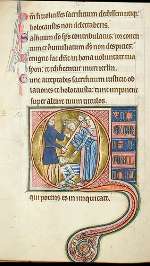 Qm si uoluisses sacrificium dedissem utiq:
holocaustis non delectaberis.
Sacrificium deo sps contribulatus: cor con
tritum & humiliatum ds non despicies.
Benigne fac dne in bona uoluntate tua
syon: ut edificentur muri ierlm.
Tunc acceptabis sacrificium iusticie ob
lationes & holocausta: tunc imponent
super altare tuum uitulos.
qui potens es in iniquitate.